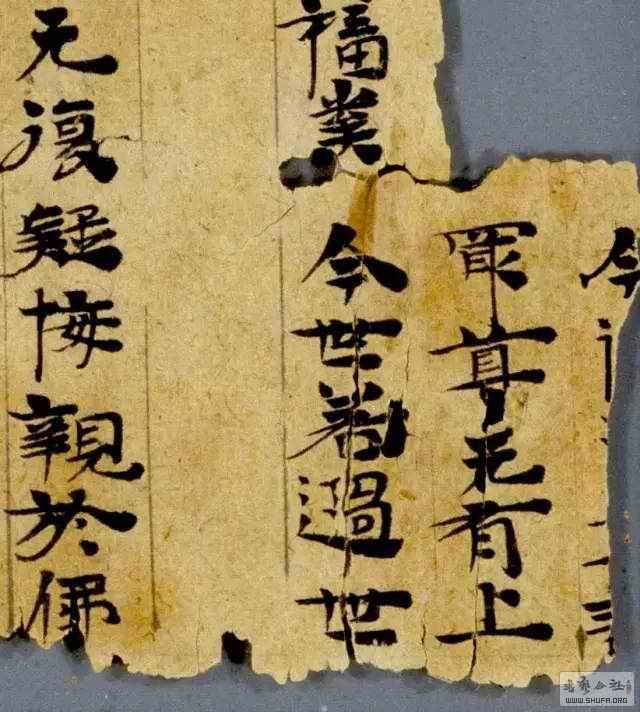 今
最尊无有上
福業今世若過世
无復疑悔親於佛
书艺公社
WWW.SHUFA.ORG